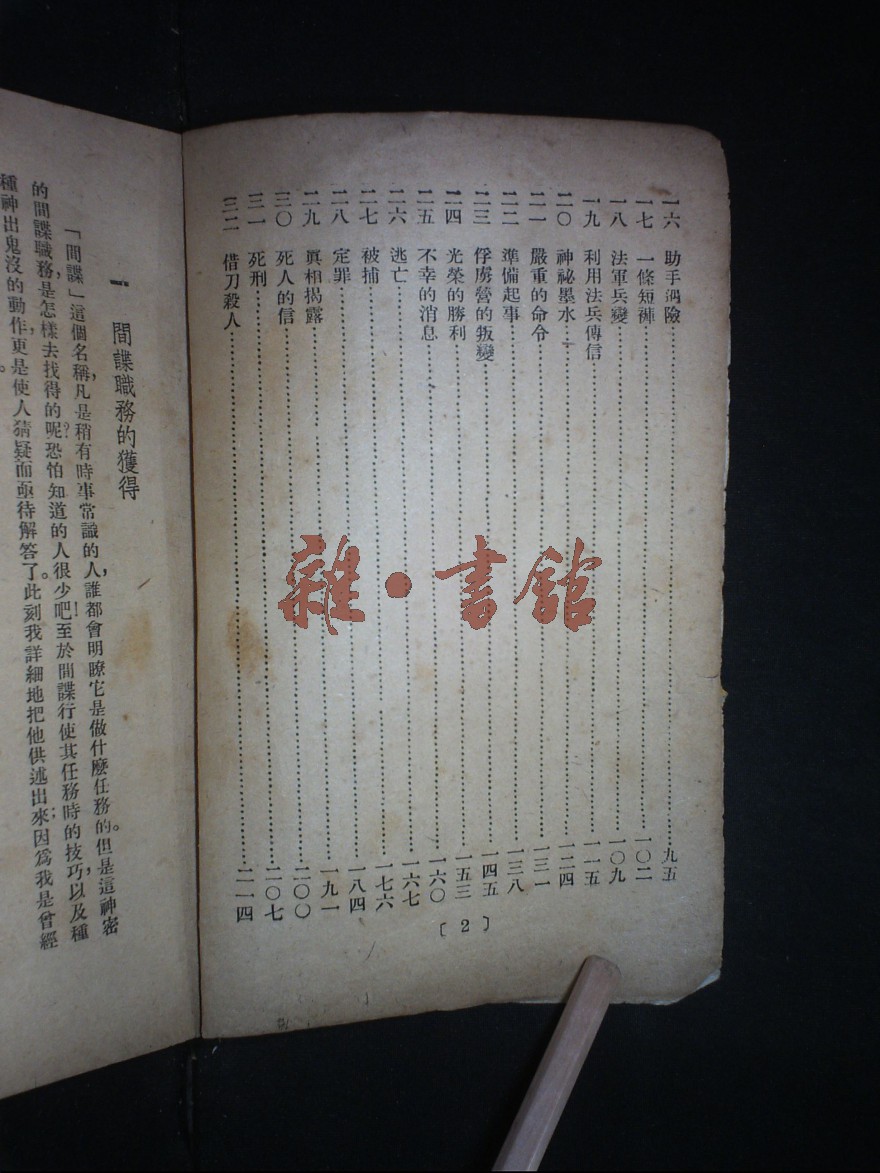 一六　助手涉險……九五
一七　一條短褲……一〇二
一八　法軍兵變……一〇九
一九　利用法兵傳信……一一五
二〇　神祕墨水……一二四
二一　嚴重的命令……一三一
二二　準備起事……一三八
二三　俘虜營的叛變……一四五
二四　光榮的勝利……一五三
二五　不幸的消息……一六〇
二六　逃亡……一六七
二七　被捕……一七六
二八　定罪……一八四
二九　眞相揭露……一九一
三〇　死人的信……二〇〇
三一　死刑……二〇七
三二　借刀殺人……二一四
〔2〕
雜·書館
一　間諜職務的獲得
「間諜」這個名稱，凡是稍有時事常識的人，誰都會明瞭它是做什麼任務的。但是這神密
的間諜職務，是怎樣去找得的呢？恐怕知道的人很少吧！至於間諜行使其任務時的技巧，以及種
種神出鬼沒的動作，更是使人猜疑而亟待解答了。此刻我詳細地把他供述出來；因爲我是曾經